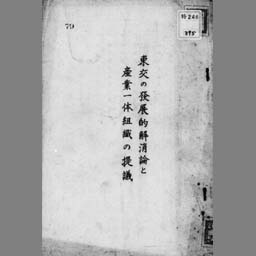 79
特246
895
東交の發展的解消論と
産業一体組織の提議